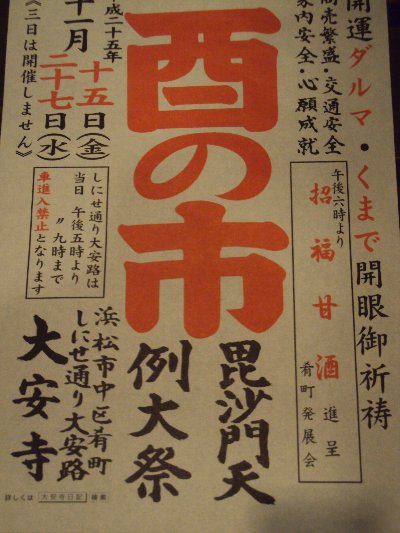 開運ダルマ・くまで開眼御祈祷
商売繁盛・交通安全
家内安全・心願成就
午後六時より
招福甘酒進呈
肴町発展会
酉の市
毘沙門天
例大祭
成二十五年
十一月
十五日(金)
二十七日(水)
《三日は開催しません》
しにせ通り大安路は
当日 午後五時より
〃 九時まで
車進入禁止となります
浜松市中区肴町
しにせ通り大安路
大安寺
詳しくは 大安寺日記 検索